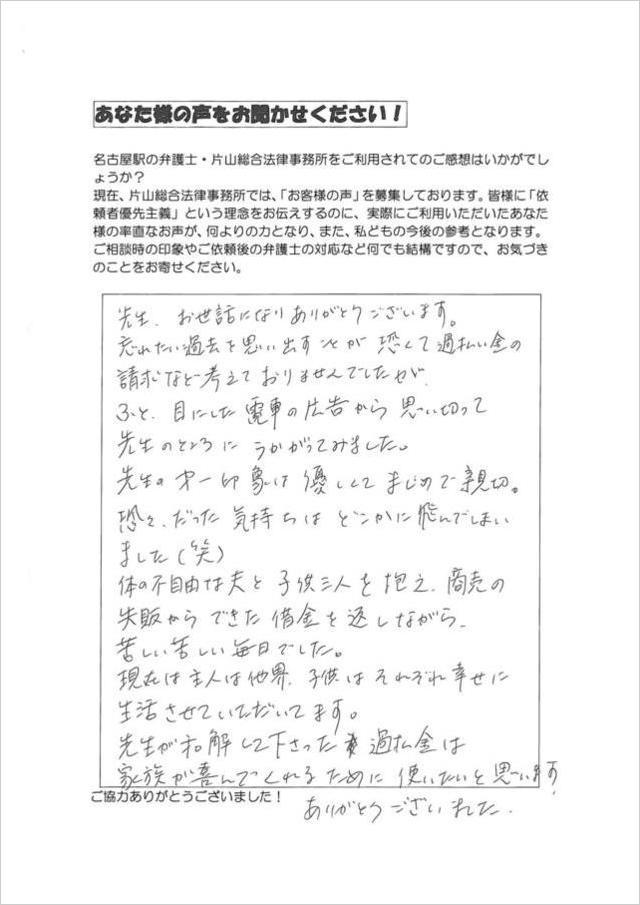 あなた様の声をお聞かせください！
名古屋駅の弁護士・片山総合法律事務所をご利用されてのご感想はいかがでし
ょうか？
現在、片山総合法律事務所では、「お客様の声」を募集しております。皆様に「依
頼者優先主義」という理念をお伝えするのに、実際にご利用いただいたあなた
様の率直なお声が、何よりの力となり、また、私どもの今後の参考となります。
ご相談時の印象やご依頼後の弁護士の対応など何でも結構ですので、お気づき
のことをお寄せください。
先生、お世話になりありがとうございます。
忘れたい過去を思い出すことが恐くて過払い金の
請求など考えておりませんでしたが、
ふと、目にした電車の広告から思い切って
先生のところにうかがってみました。
先生の第一印象は優しくてまじめで親切。
恐々だった気持ちはどこかに飛んでしまい
ました(笑)
体の不自由な夫と子供三人を抱え、商売の
失敗からできた借金を返しながら、
苦しい苦しい毎日でした。
現在は主人は他界、子供はそれぞれ幸せに
生活させていただいてます。
先生が和解して下さった過払金は
家族が喜んでくれるために使いたいと思います
ご協力ありがとうございました！
ありがとうございました。